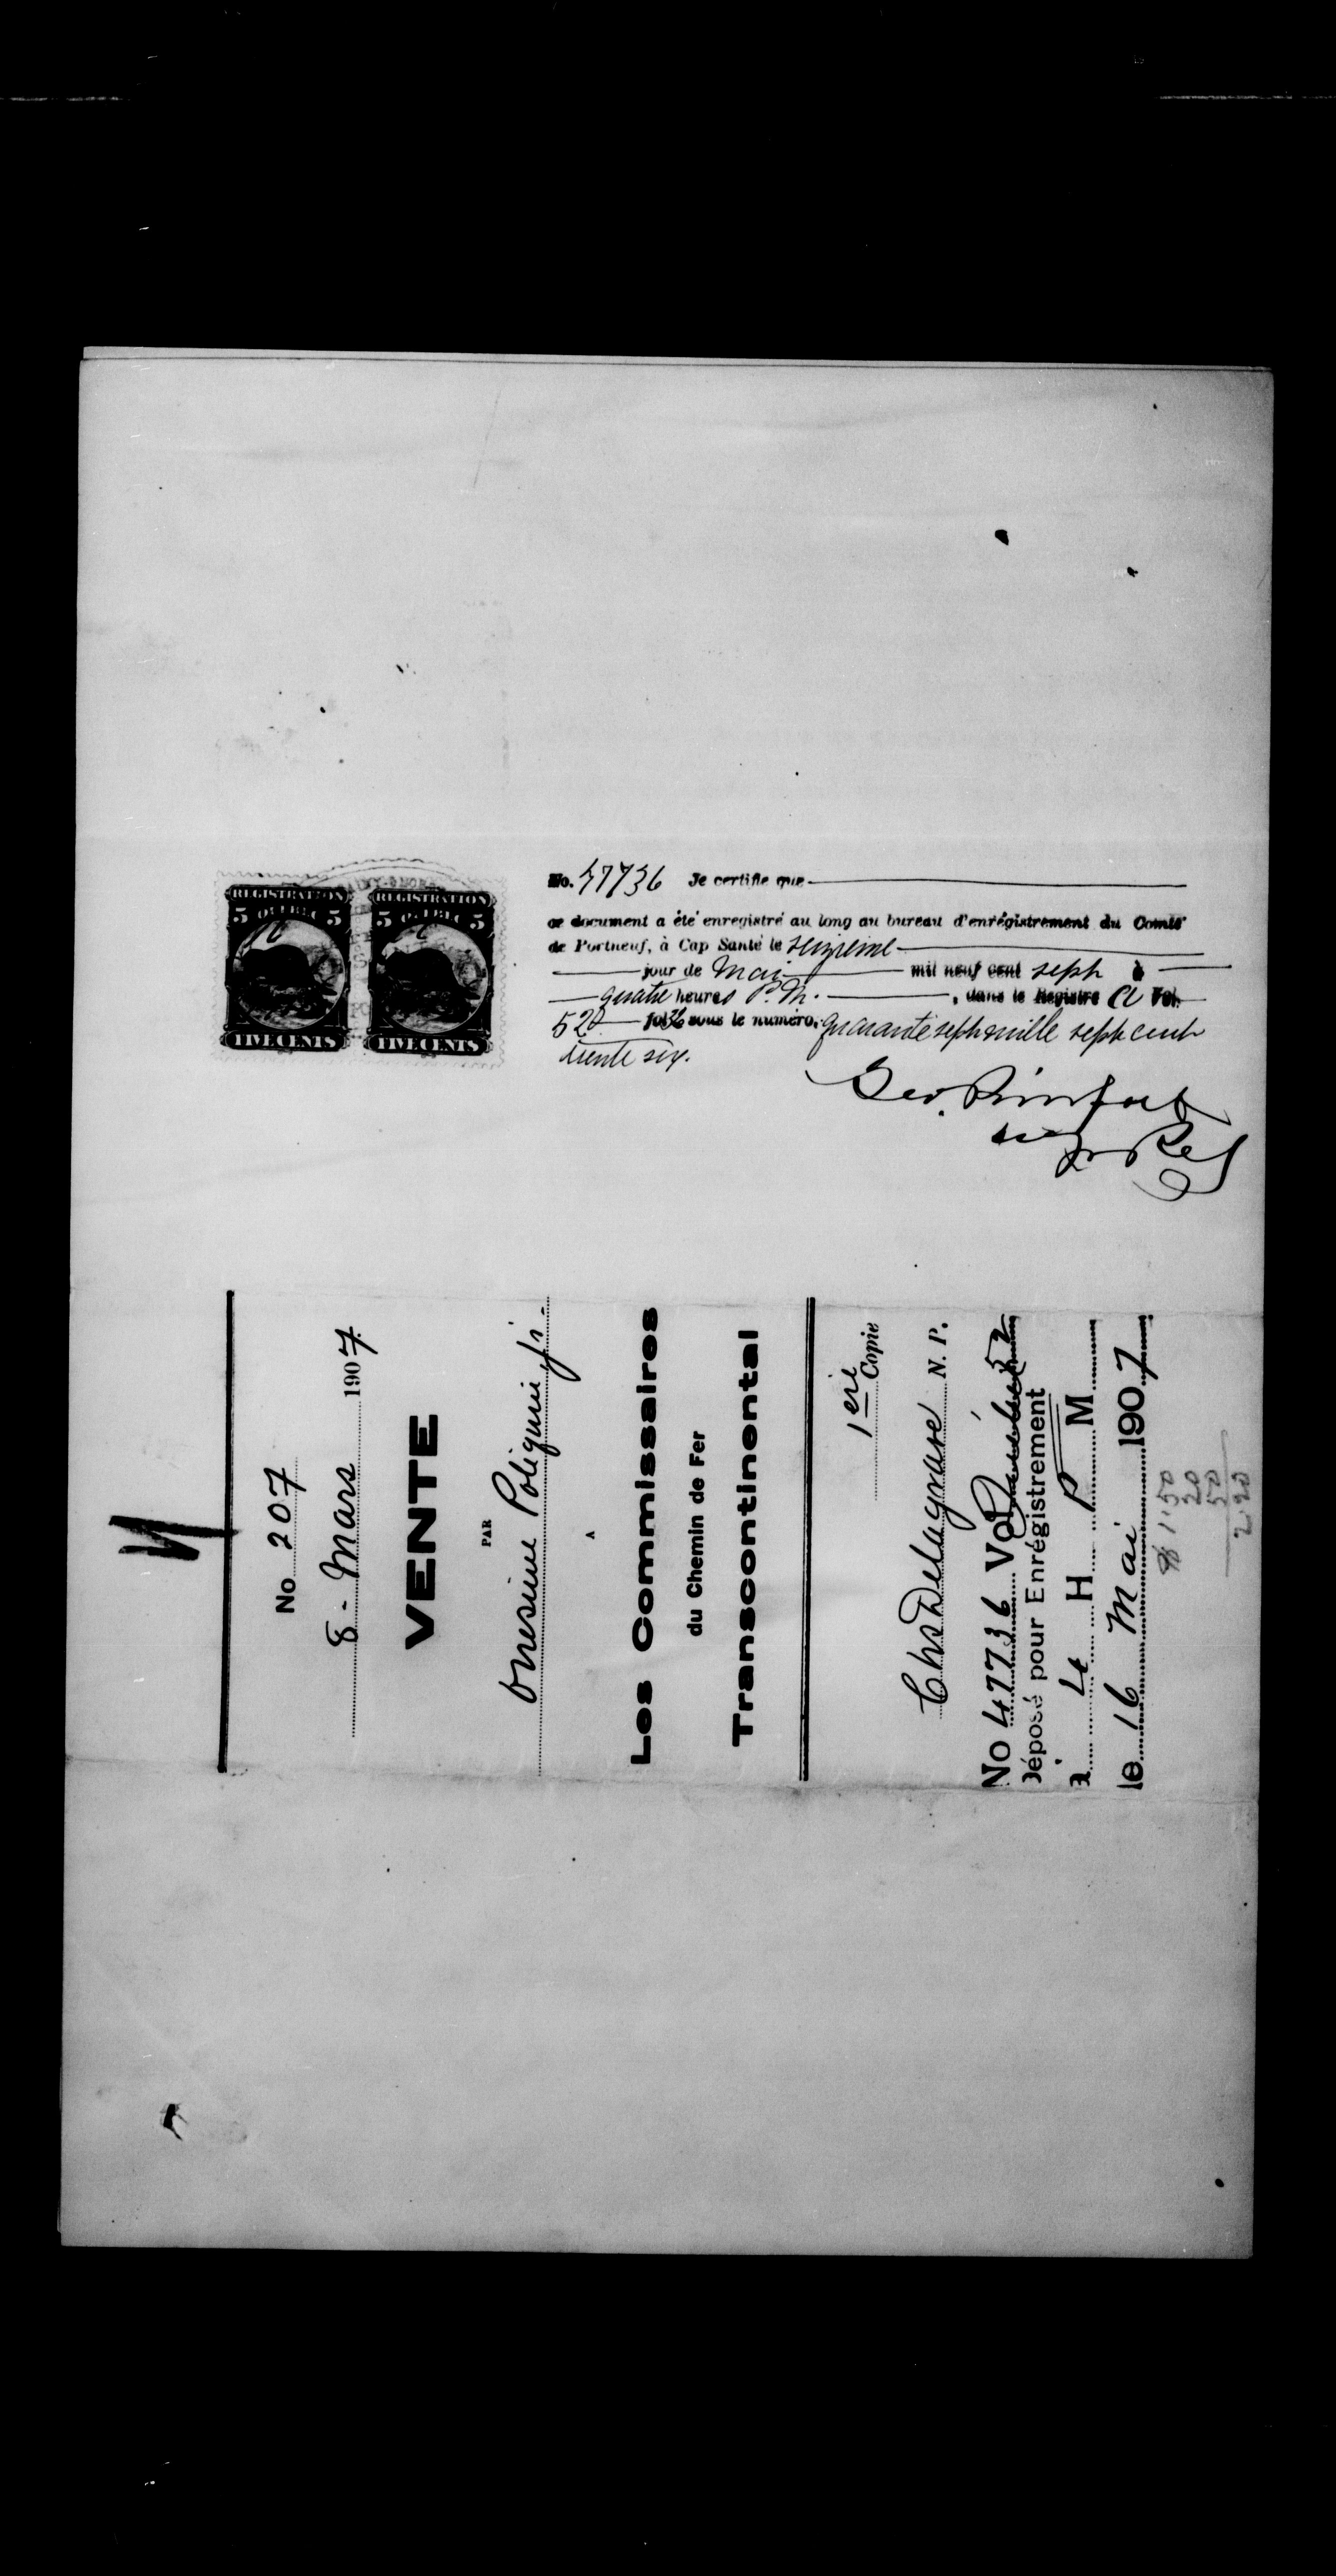 REGISTRATION
5 QUEBEC 5
FIVE CENTS
REGISTRATION
5 QUEBEC 5
FIVE CENTS
No. 47736 Je certifie que
ce document a été enregistré au long au bureau d'enrégistrement du Comté
de Portneuf, à Cap Santé le seizième
jour de Mai mil neuf cent sept à
quatre heures P. M. , dans le Registre Vol.
52 fol 36 sous le numéro, quarante sept mille sept cent
trente six.
No 207
8 - Mars 1907
VENTE
PAR
Onesime Poliquin
A
Les Commissaires
du Chemin de Fer
Transcontinental
1ere Copie
Chs Delagrave N. P.
No 47736 Vol 52
Déposé pour Enrégistrement
à 4 H P M
le 16 Mai 1907
$1.50
20
50
2.20